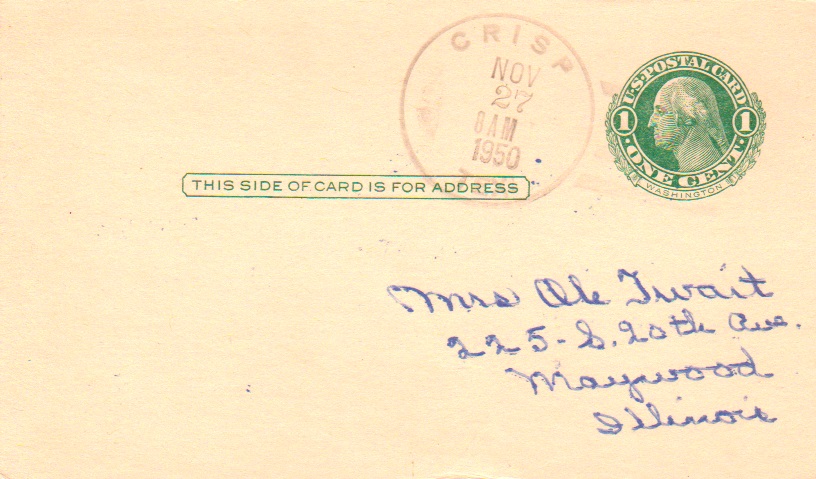 CRISP
NOV
27
8 AM
1950
U.S. POSTAL CARD
1 1
·ONE CENT·
WASHINGTON
THIS SIDE OF CARD IS FOR ADDRESS
Mrs Ole Twait
225-S. 20th Ave.
Maywood
Illinois